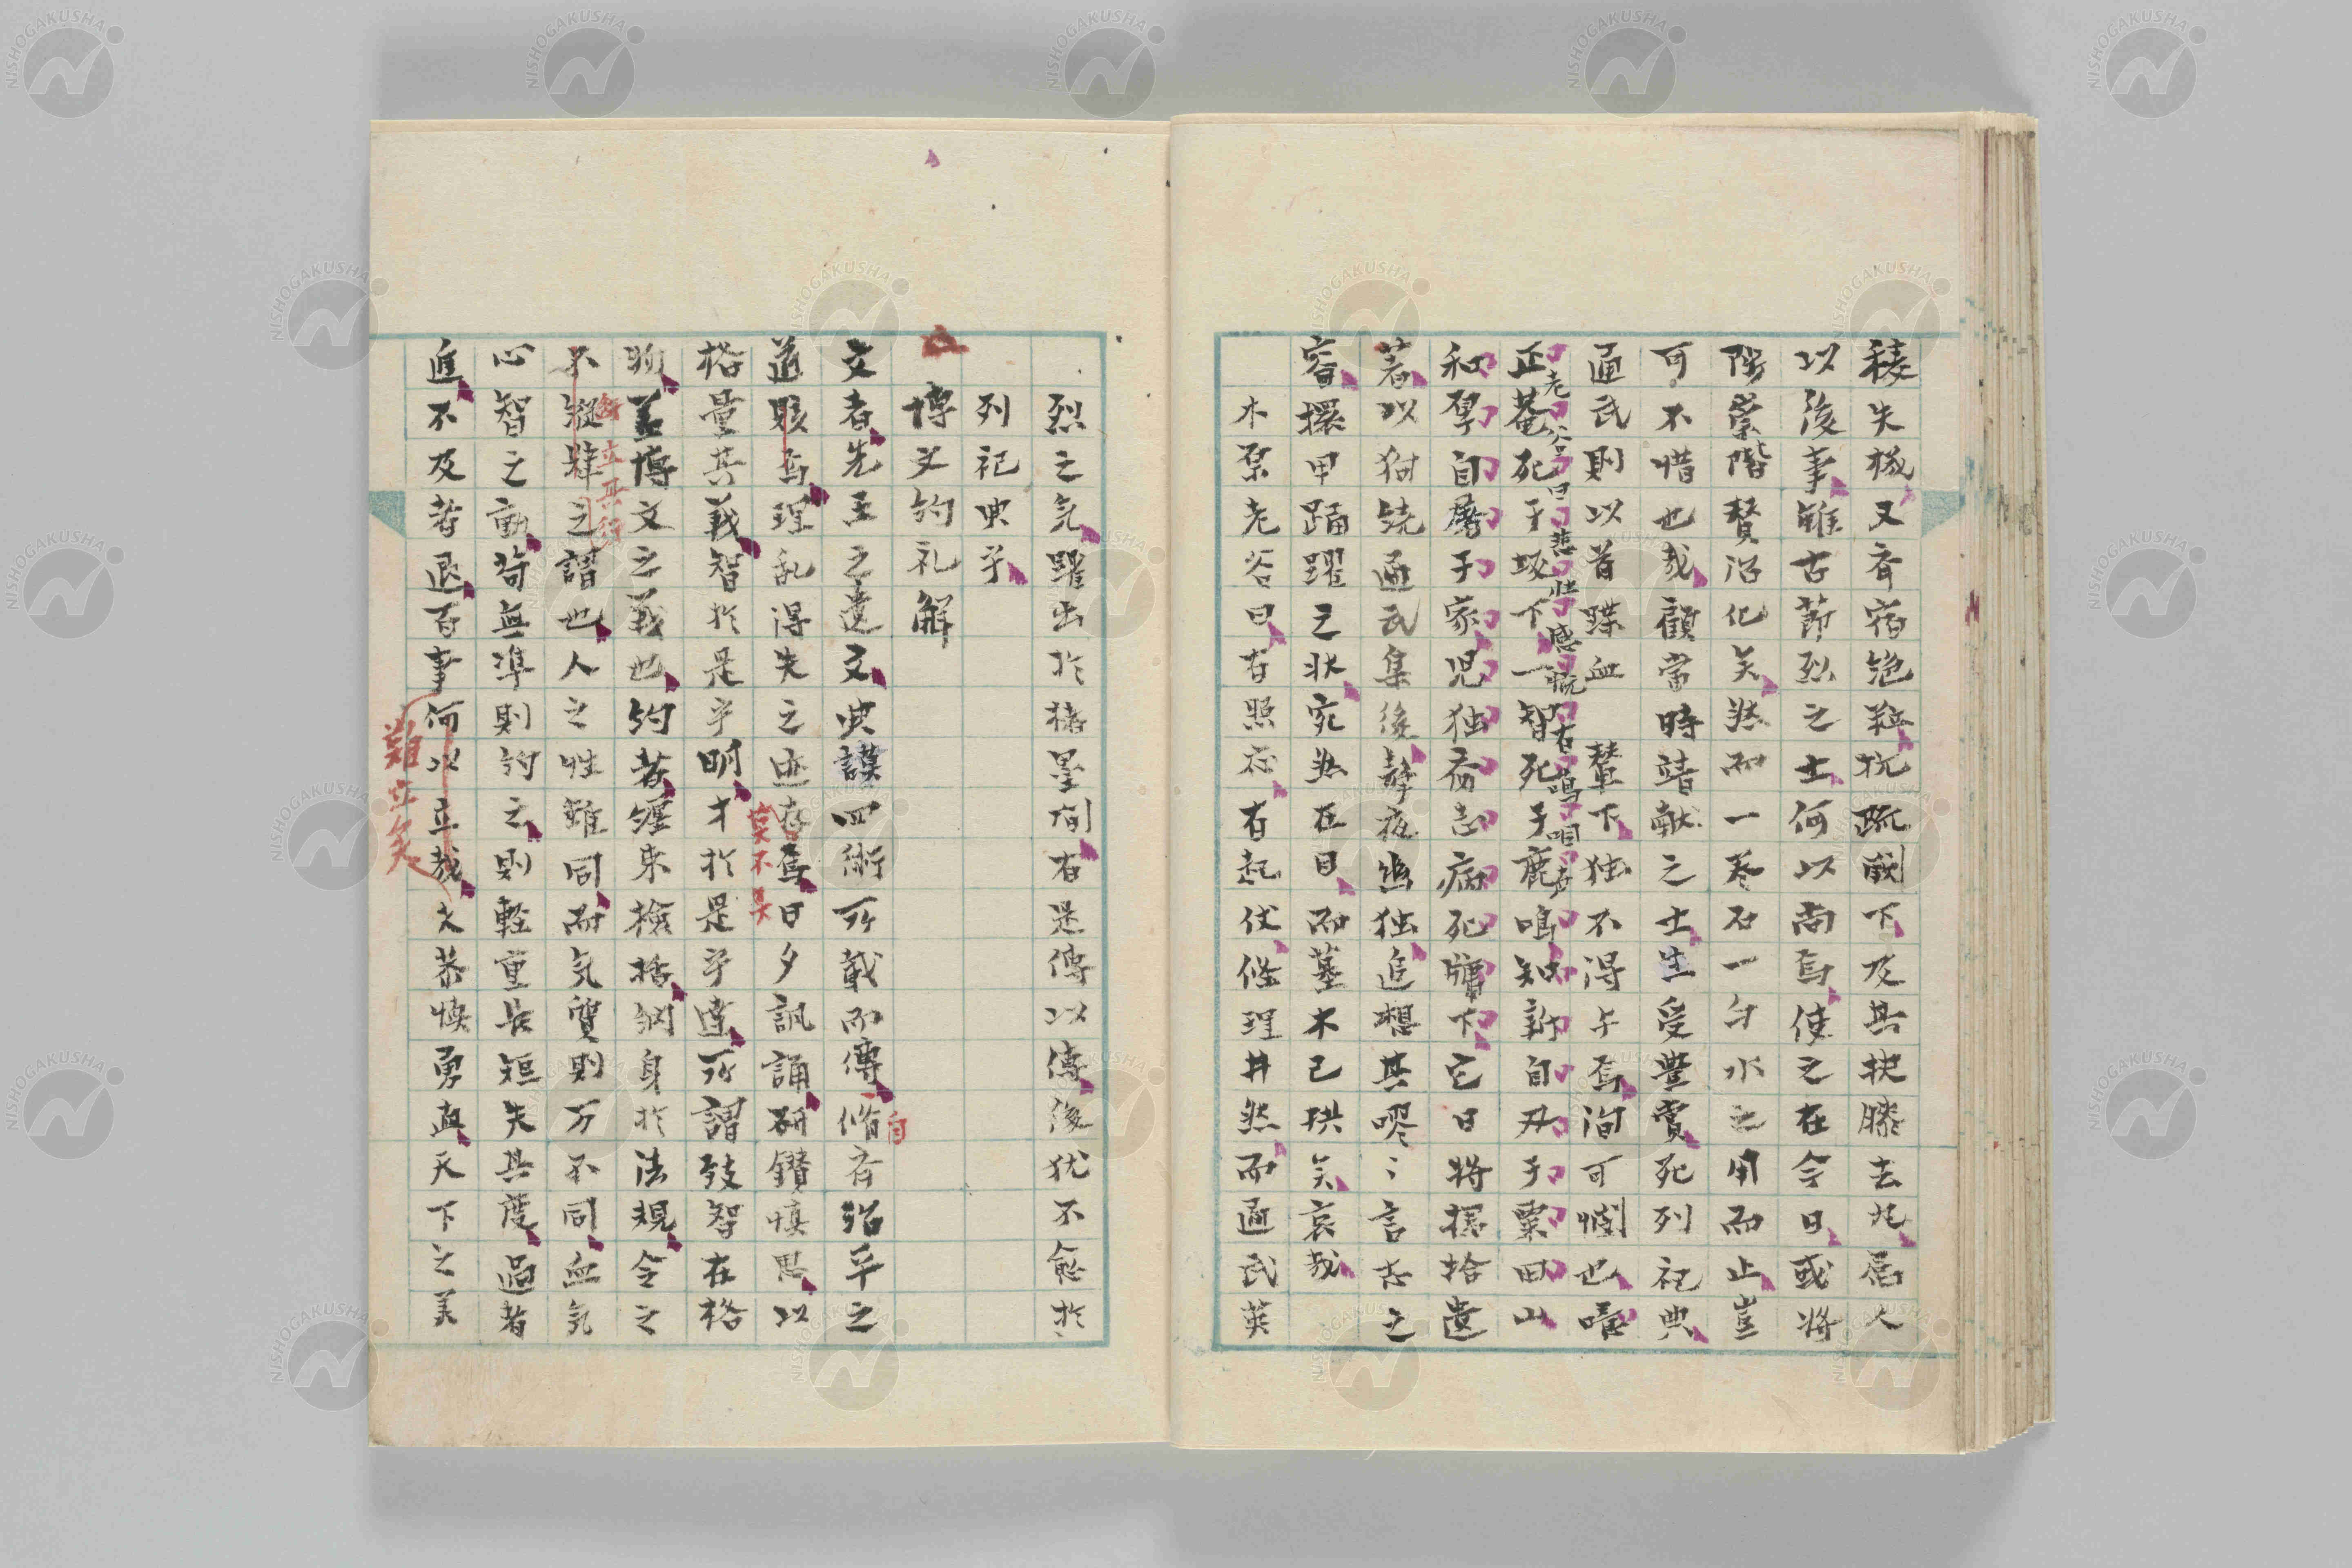 稜失機又斉宿絶粒抗疏闕下及其挟牋去尤屈人
以後事雖古節烈之士何以尚焉使之在今日或将
陟崇階賛治化矣然而一巻石一勺水之用而止豈
可不惜也哉顧當時請献之士生受豊賞死列祀典
通武則以首蹀血輦下独不得与焉洵可惻也噫
老谷曰悲壮感慨大有鳴咽声
正菴死于坂下一智死于鹿鳴知新自刃于粟田山
和孚自屠于家児独斎志病死牖下它日将摭拾遺
著以剞𠜇通武集後静夜幽独追想其嘐〻言志之
容擐甲踊躍之状宛然在目而墓木已拱矣哀哉
木原老谷曰有照応有起伏條理井然而通武英
烈之気躍出於楮墨間有是傳以傳後猶不愈於
列祀典乎
博文約礼解
文者先王之遺文典謨四術所載而傳脩斉治平之
自
道賅焉理乱得失之迹存焉日夕諷誦研鑚慎思以
莫不具
格量其義智於是乎明才於是乎達所謂致智在格
物蓋博文之義也約者纏束撿括納身於法規令之
不縦肆之謂也人之性雖同而気質則万不同血気
立其行
心智之動苟無準則約之則軽重長短失其度過者
進不及者退百事何以立哉夫恭慎勇直天下之美
難立矣
NISHOGAKUSHA